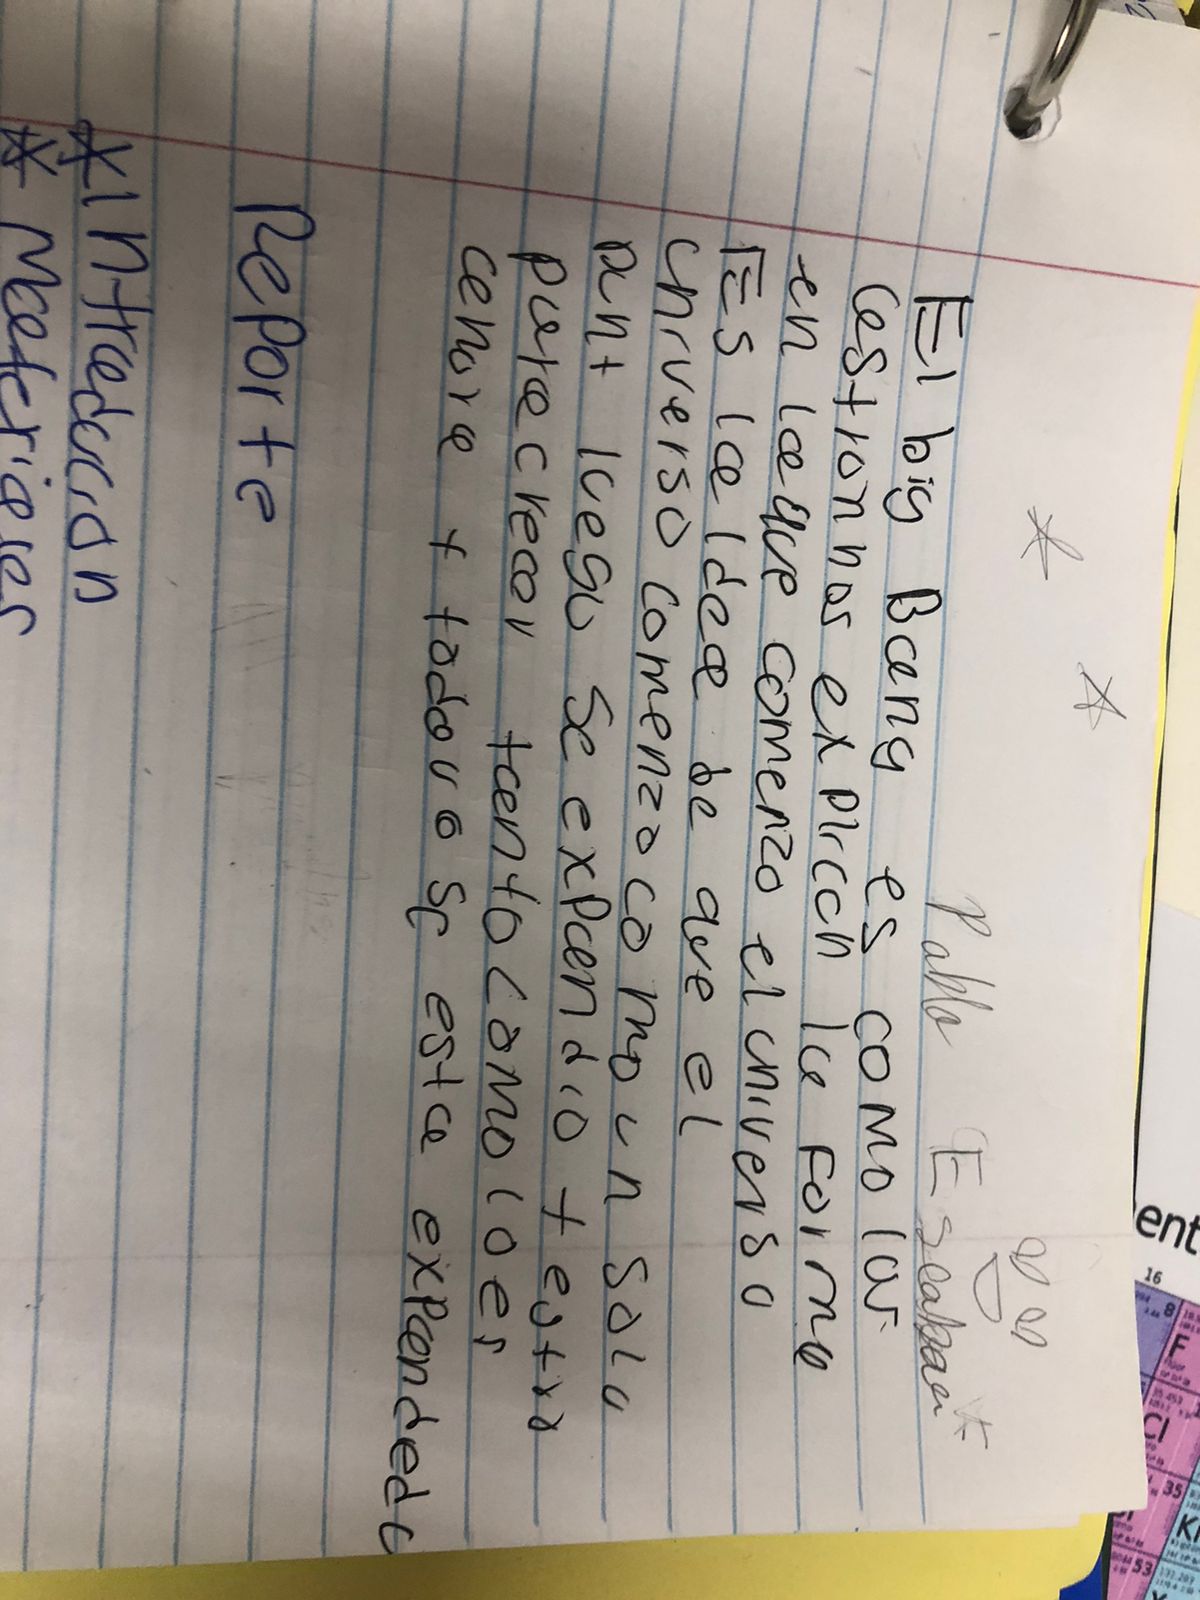 Pablo Escobar
El big Bang es como los
astronnos explican la forma
en la que comenzo el universo
Es la idea de que el
universo comenzo como un solo
punt luego se expandio + estira
para crecer tanto como lo es
ahora + todavia se esta expanded
Reporte
*Introducion
* Materiales
ent
16
8
F
Cl
35
53